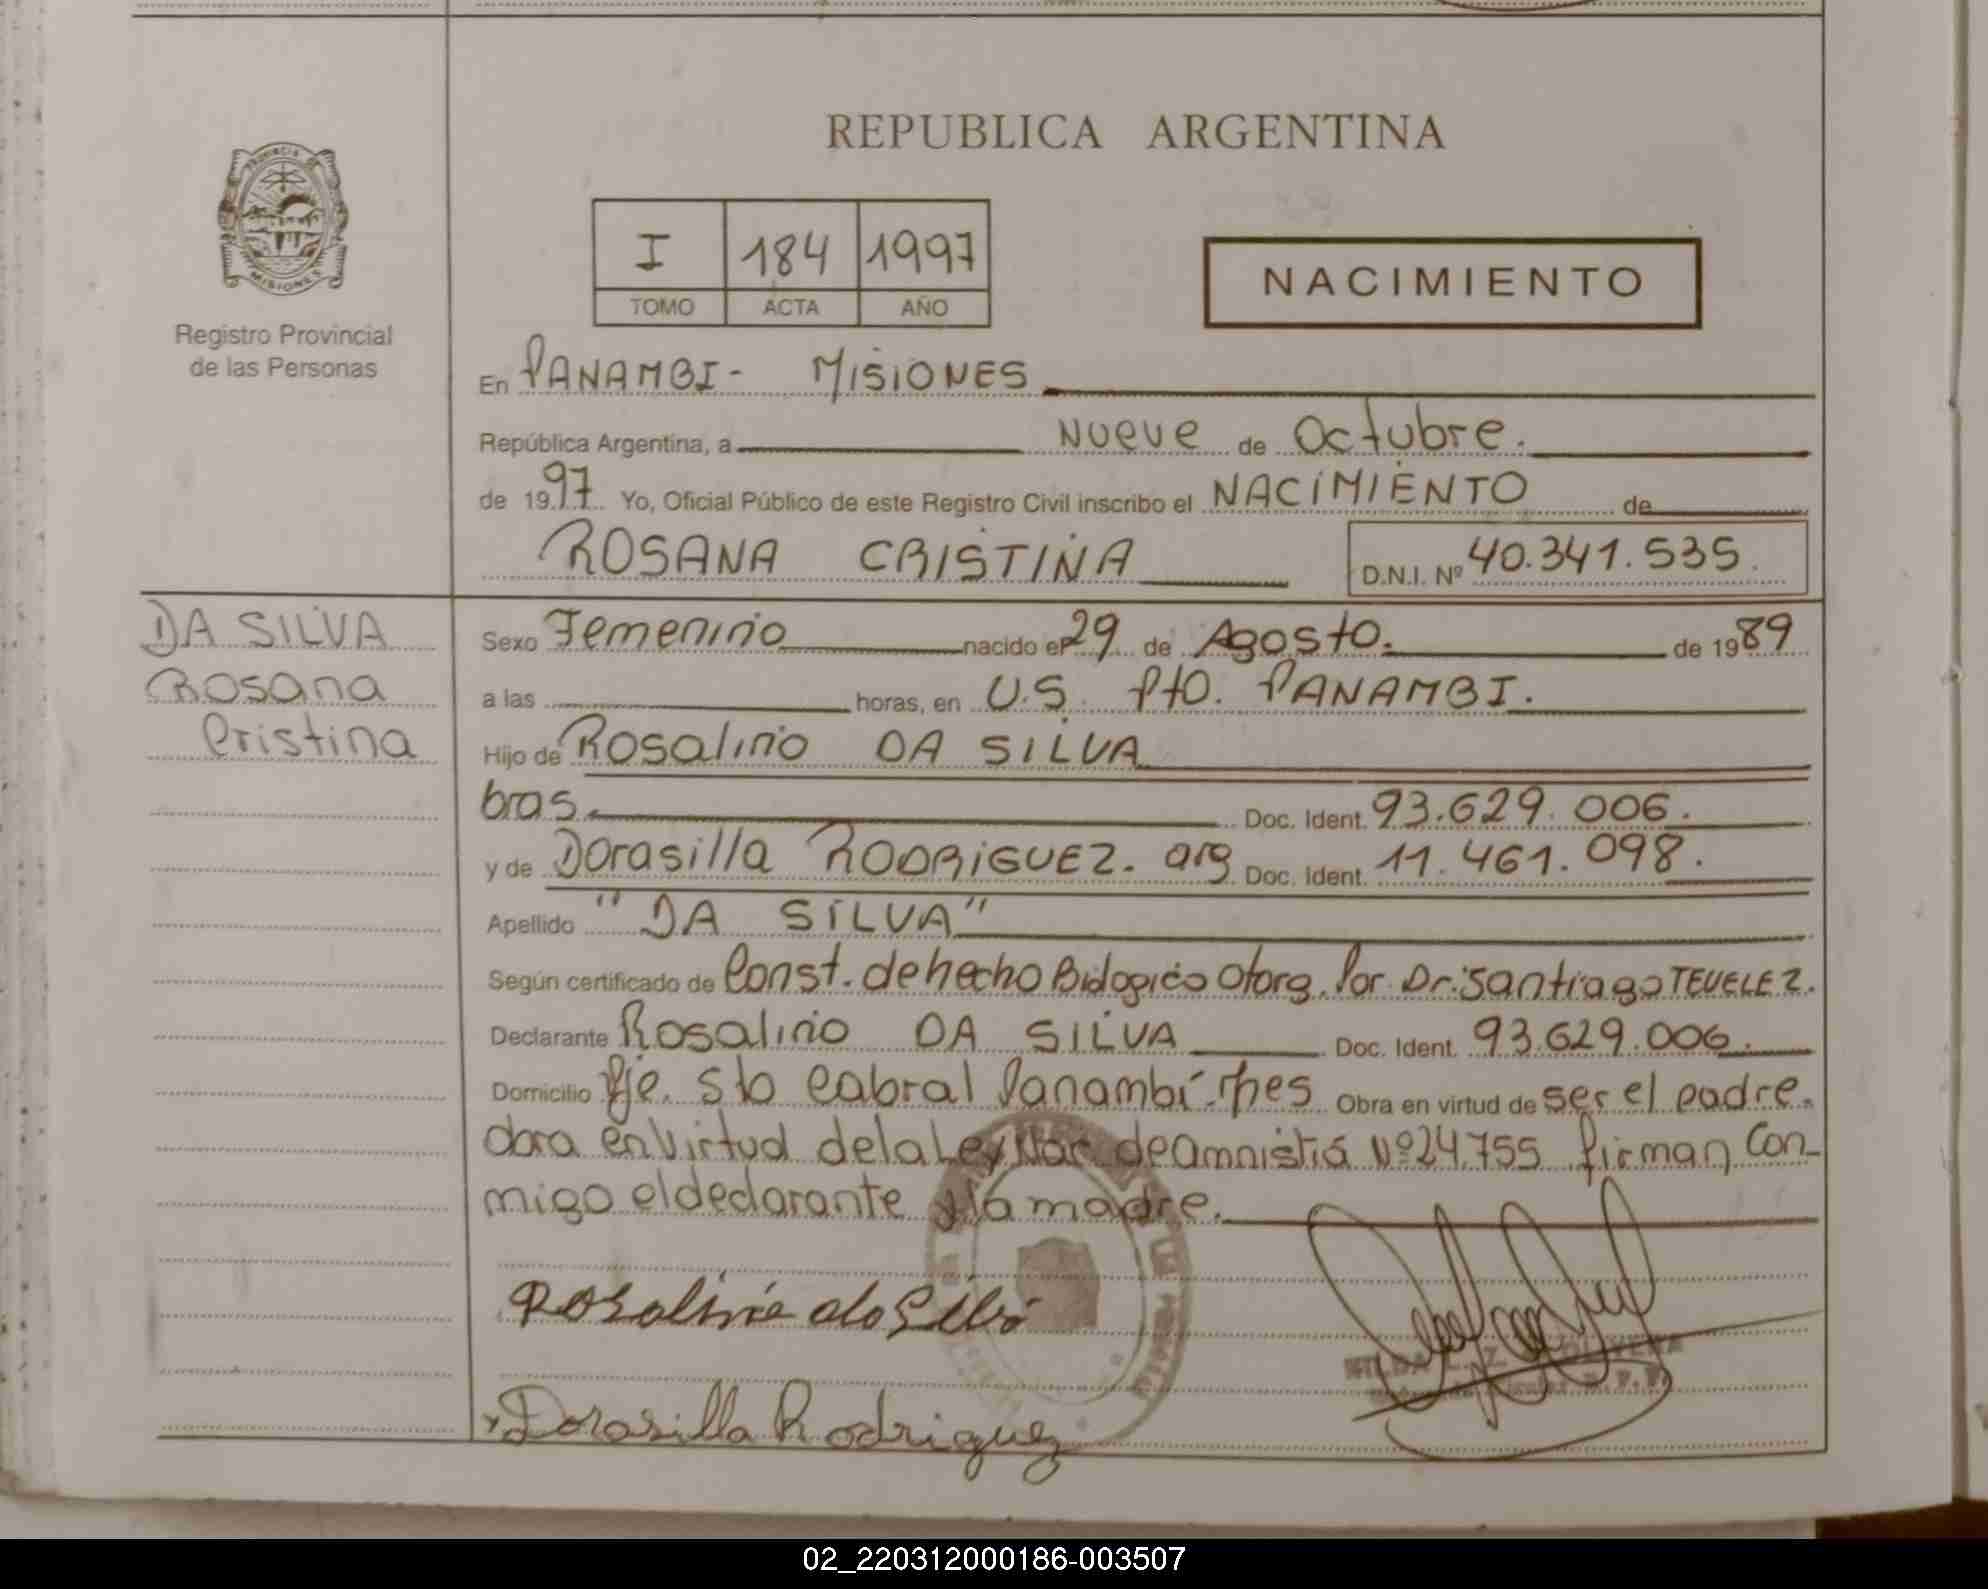 REPUBLICA ARGENTINA
PROVINCIA DE
MISIONES
Registro Provincial
de las Personas
I 184 1997
TOMO ACTA AÑO
NACIMIENTO
En PANAMBI- MISIONES
República Argentina, a Nueve de Octubre.
de 1997 Yo, Oficial Público de este Registro Civil inscribo el NACIMIENTO de
ROSANA CRISTINA D.N.I. Nº 40.341.535.
DA SILVA
Rosana
Cristina
Sexo Femenino nacido el 29 de Agosto. de 1989
a las horas, en U.S. Pto. PANAMBI.
Hijo de Rosalino DA SILVA
bras. Doc. Ident. 93.629.006.
y de Dorasilla RODRIGUEZ. arg Doc. Ident. 11.461.098.
Apellido "DA SILVA"
Según certificado de Const. de hecho Biologico Otorg. Por Dr. Santiago TEVELEZ.
Declarante Rosalino DA SILVA Doc. Ident. 93.629.006.
Domicilio Pje. Sto Cabral Panambi-Mnes Obra en virtud de ser el padre.
obra en Virtud de la Ley Nac de Amnistia Nº 24.755 firman Con-
migo el declarante y la madre.
Rosalino da Silva
Dorasilla Rodriguez
02_220312000186-003507